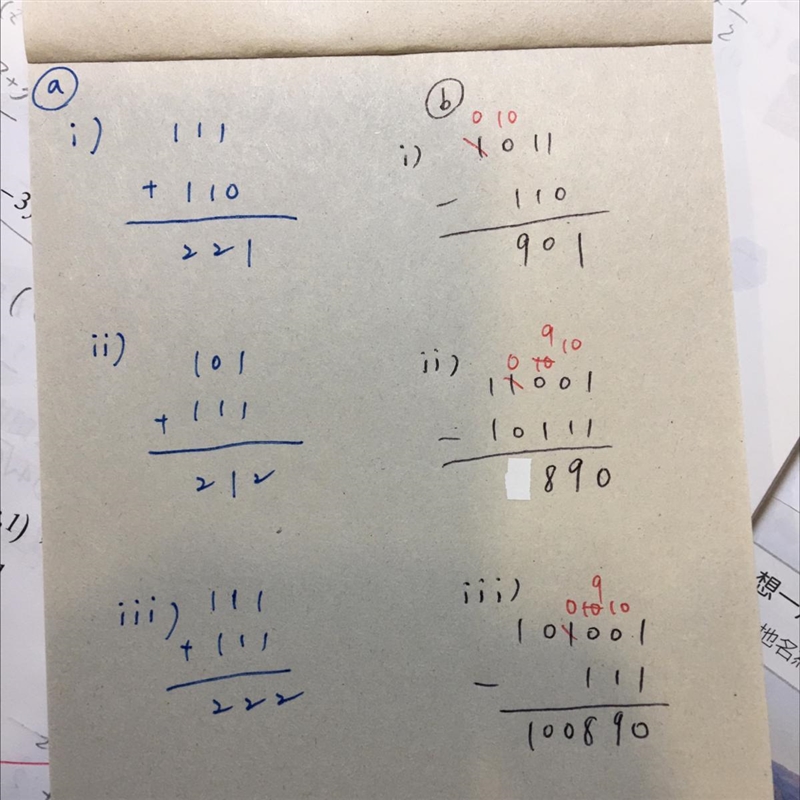 a
i) 111
+ 110
221
ii) 101
+ 111
212
iii) 111
+ 111
222
b
0 10
i) 1011
- 110
901
9
0 10 10
ii) 11001
- 10111
890
9
0 10 10
iii) 101001
- 111
100890
想一
地名